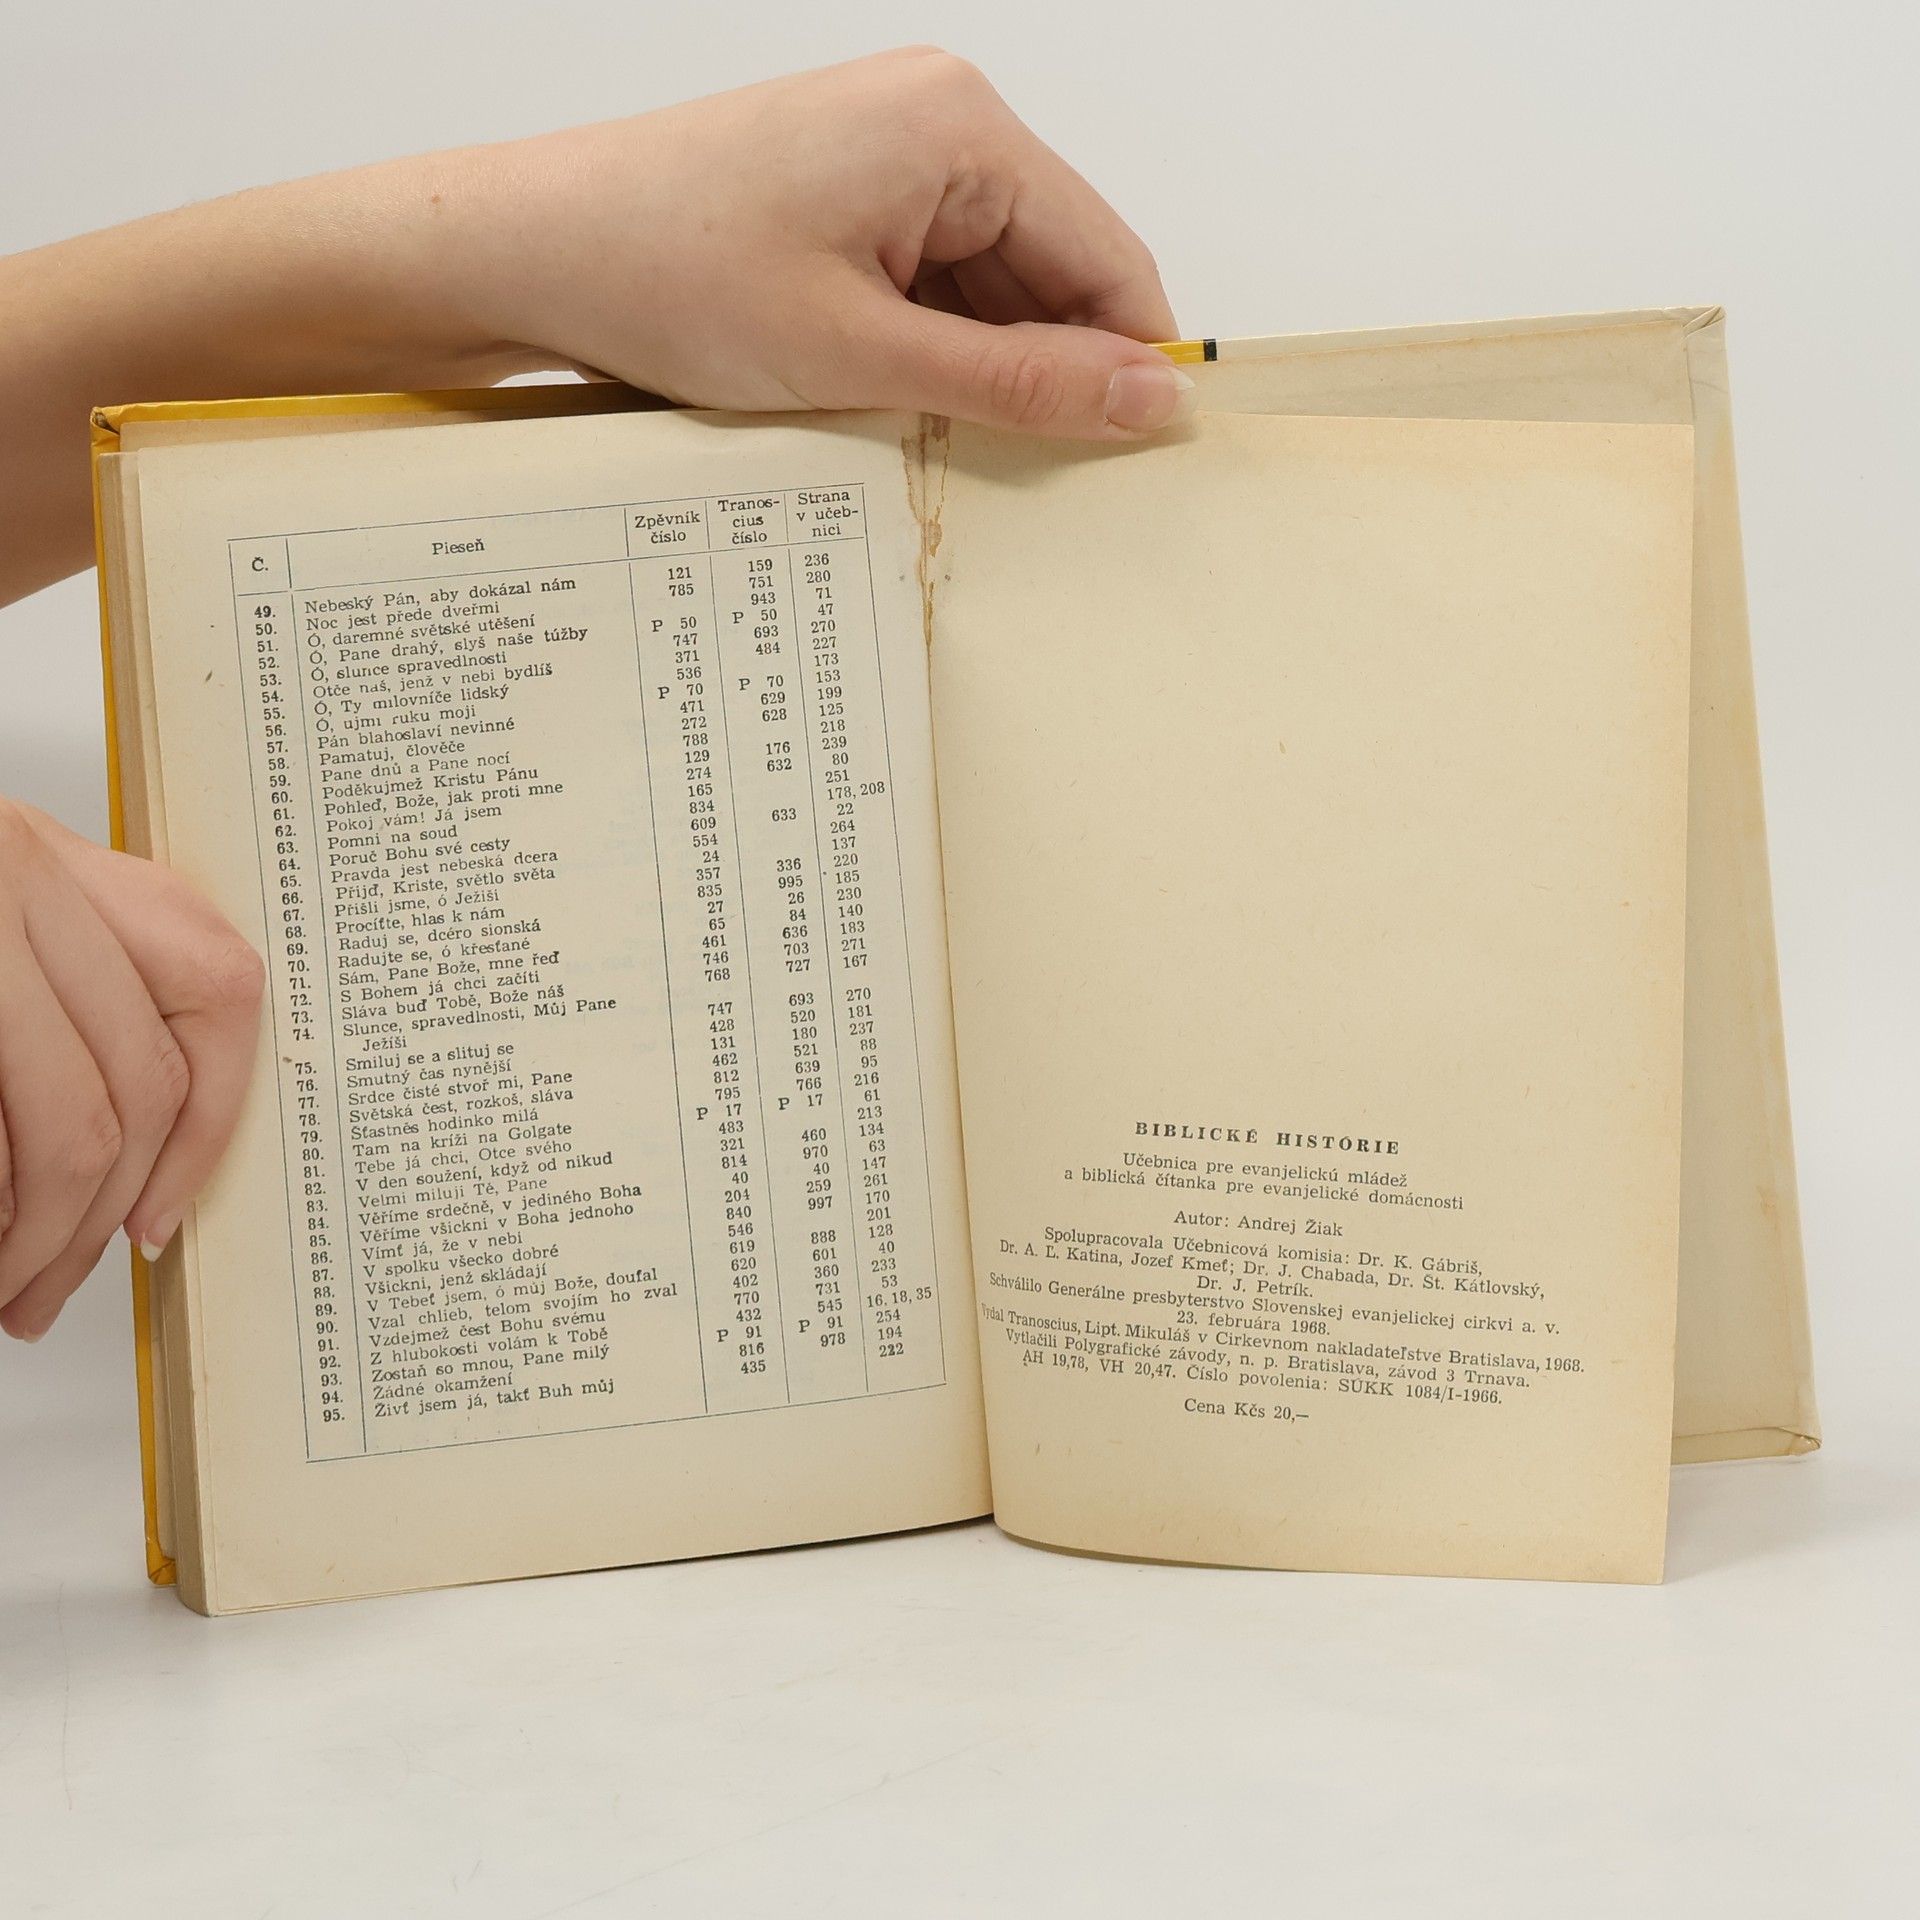 Č. Pieseň Zpěvník číslo Tranos-cius číslo Strana v učeb-nici
49. Nebeský Pán, aby dokázal nám 121 159 236
50. Noc jest přede dveřmi 785 751 280
51. Ó, daremné světské utěšení 943 71
52. Ó, Pane drahý, slyš naše túžby P 50 P 50 47
53. Ó, slunce spravedlnosti 747 693 270
54. Otče náš, jenž v nebi bydlíš 371 484 227
55. Ó, Ty milovníče lidský 536 173
56. Ó, ujmi ruku moji P 70 P 70 153
57. Pán blahoslaví nevinné 471 629 199
58. Pamatuj, člověče 272 628 125
59. Pane dnů a Pane nocí 788 218
60. Poděkujmež Kristu Pánu 129 176 239
61. Pohleď, Bože, jak proti mne 274 632 80
62. Pokoj vám! Já jsem 165 251
63. Pomni na soud 834 178, 208
64. Poruč Bohu své cesty 609 633 22
65. Pravda jest nebeská dcera 554 264
66. Přijď, Kriste, světlo světa 24 137
67. Přišli jsme, ó Ježiši 357 336 220
68. Procíťte, hlas k nám 835 995 185
69. Raduj se, dcéro sionská 27 26 230
70. Radujte se, ó křesťané 65 84 140
71. Sám, Pane Bože, mne řeď 461 636 183
72. S Bohem já chci začíti 746 703 271
73. Sláva buď Tobě, Bože náš 768 727 167
74. Slunce, spravedlnosti, Můj Pane
Ježíši 747 693 270
75. Smiluj se a slituj se 428 520 181
76. Smutný čas nynější 131 180 237
77. Srdce čisté stvoř mi, Pane 462 521 88
78. Světská čest, rozkoš, sláva 812 639 95
79. Šťastnés hodinko milá 795 766 216
80. Tam na kríži na Golgate P 17 P 17 61
81. Tebe já chci, Otce svého 483 213
82. V den soužení, když od nikud 321 460 134
83. Velmi miluji Tě, Pane 814 970 63
84. Věříme srdečně, v jediného Boha 40 40 147
85. Věříme všickni v Boha jednoho 204 259 261
86. Vímť já, že v nebi 840 997 170
87. V spolku všecko dobré 546 201
88. Všickni, jenž skládají 619 888 128
89. V Tebeť jsem, ó můj Bože, doufal 620 601 40
90. Vzal chlieb, telom svojím ho zval 402 360 233
91. Vzdejmež čest Bohu svému 770 731 53
92. Z hlubokosti volám k Tobě 432 545 16, 18, 35
93. Zostaň so mnou, Pane milý P 91 P 91 254
94. Žádné okamžení 816 978 194
95. Živť jsem já, takť Buh můj 435 222
BIBLICKÉ HISTÓRIE
Učebnica pre evanjelickú mládež
a biblická čítanka pre evanjelické domácnosti
Autor: Andrej Žiak
Spolupracovala Učebnicová komisia: Dr. K. Gábriš,
Dr. A. Ľ. Katina, Jozef Kmeť; Dr. J. Chabada, Dr. Št. Kátlovský,
Dr. J. Petrík.
Schválilo Generálne presbyterstvo Slovenskej evanjelickej cirkvi a. v.
23. februára 1968.
Vydal Tranoscius, Lipt. Mikuláš v Cirkevnom nakladateľstve Bratislava, 1968.
Vytlačili Polygrafické závody, n. p. Bratislava, závod 3 Trnava.
AH 19,78, VH 20,47. Číslo povolenia: SÚKK 1084/I-1966.
Cena Kčs 20,—